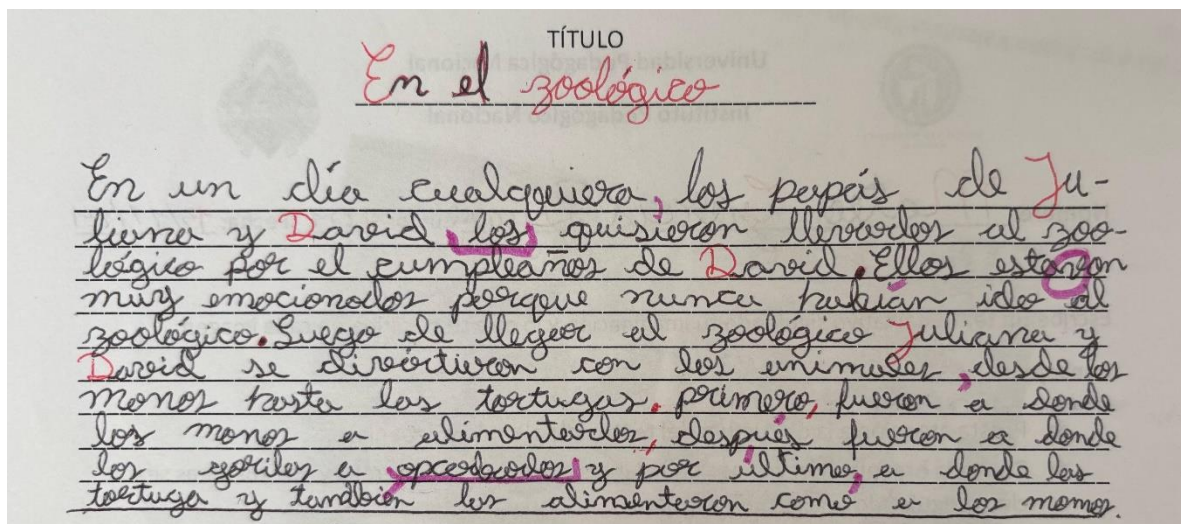 TÍTULO
En el zoológico
En un día cualquiera, los papás de Ju-
liana y David los quisieron llevarlos al zoo-
lógico por el cumpleaños de David. Ellos estavon
muy emocionados porque nunca habían ido al
zoológico. Luego de llegar al zoológico Juliana y
David se divirtieron con los animales, desde los
monos hasta las tortugas. primero, fueron a donde
los monos a alimentarlos, después fueron a donde
los gorilas a y por último a donde las
tortuga y también las alimentaron como a los monos.